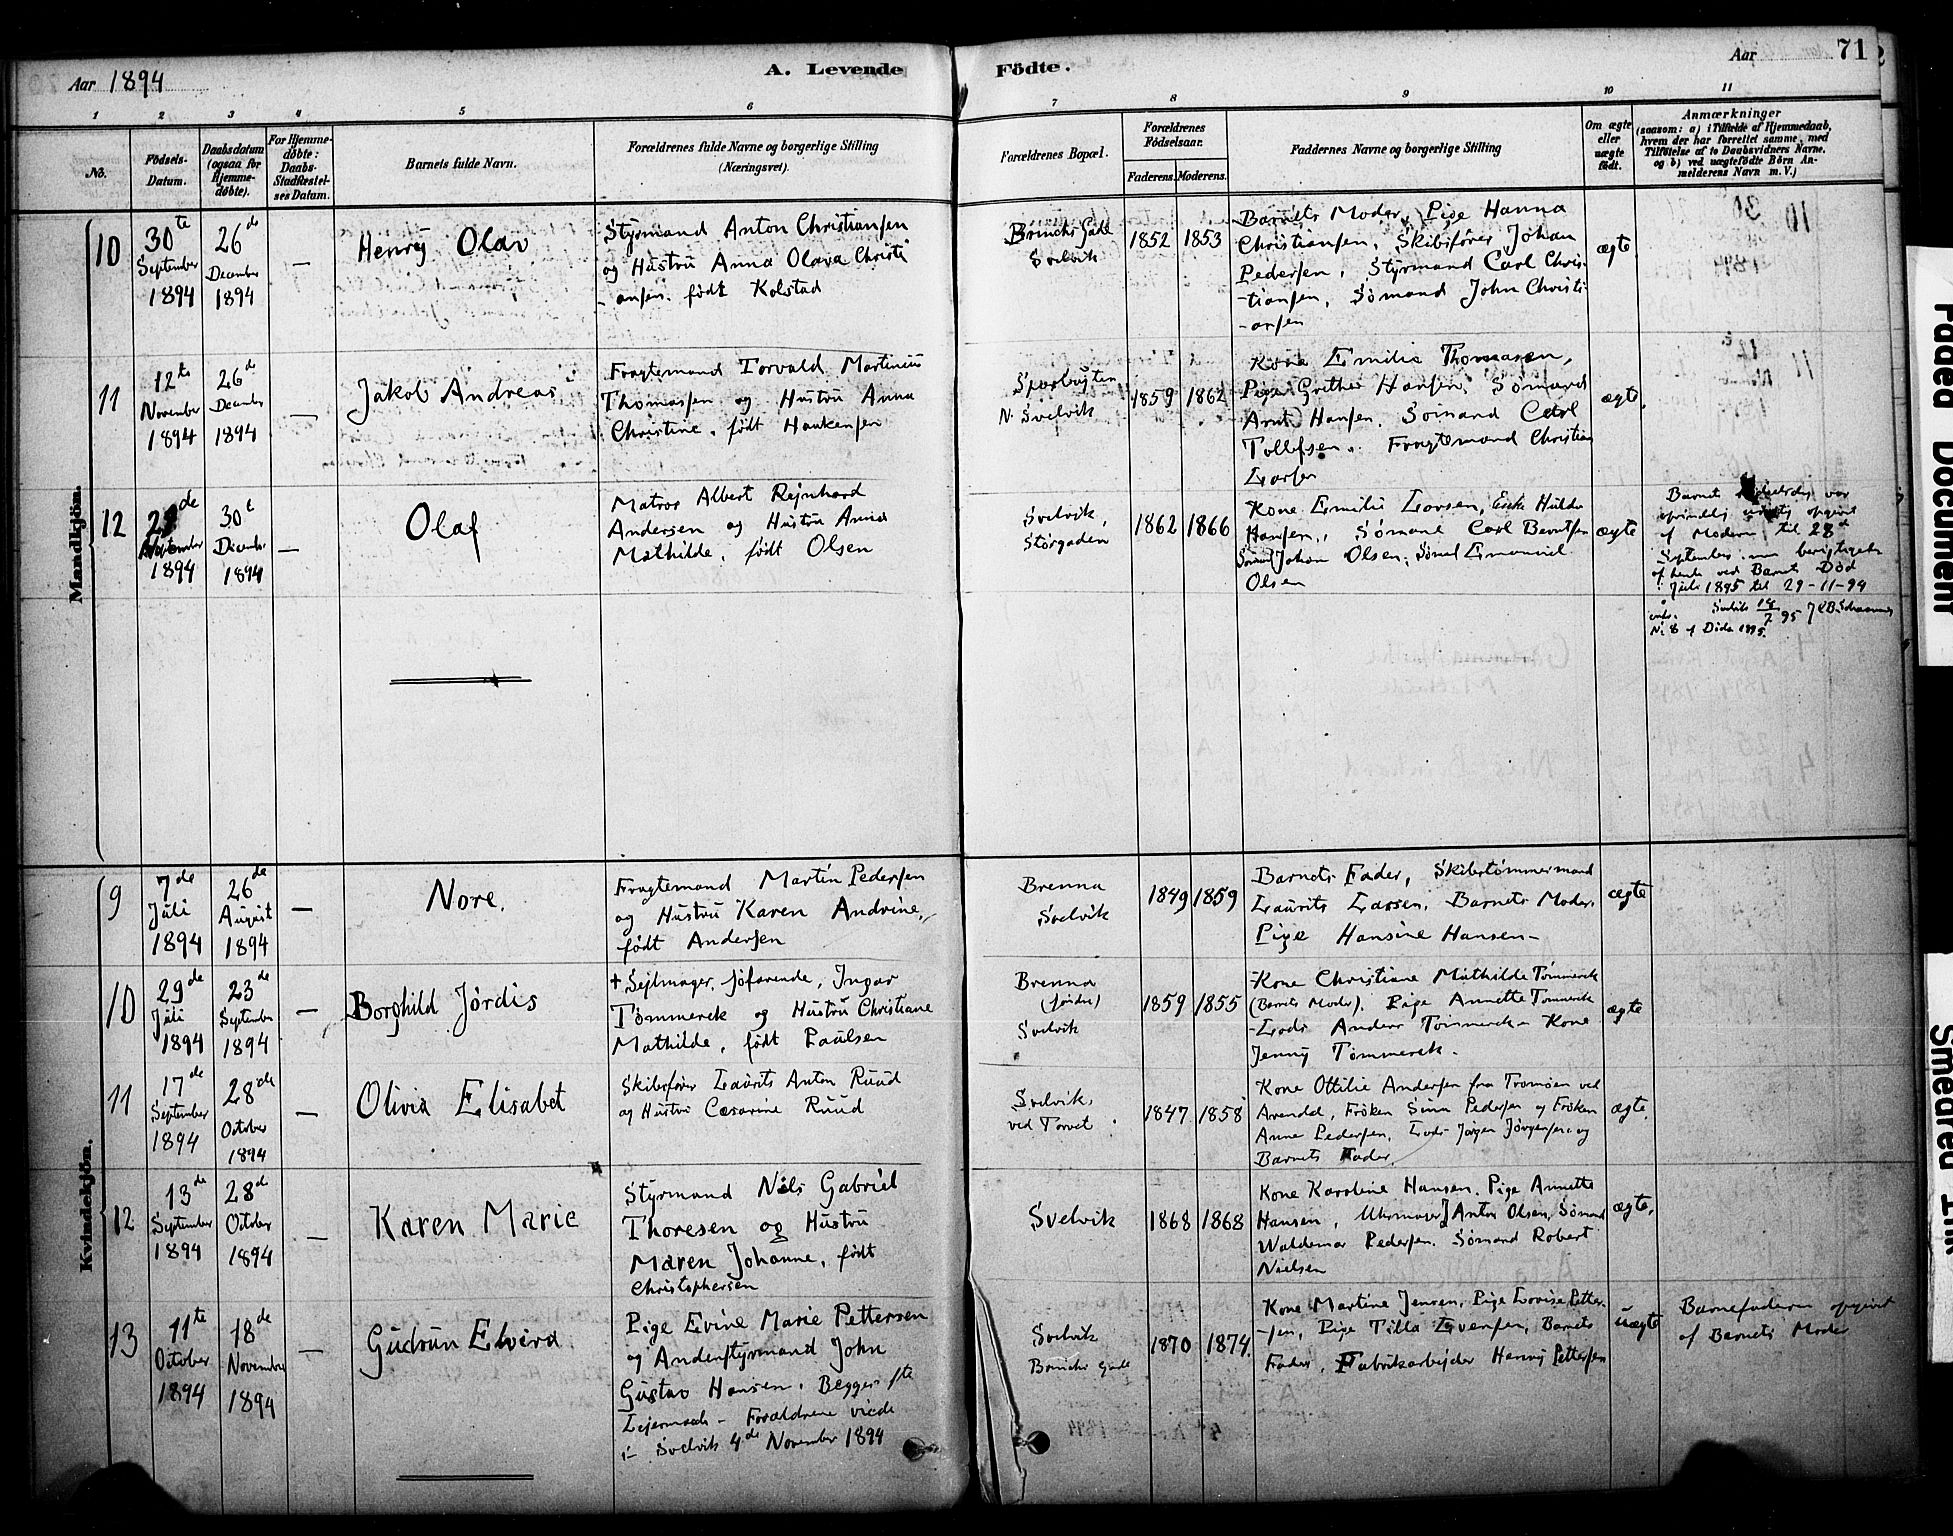 Aar 1894
A. Levende
Födte.
Aar
71
1
2
3
4
5
6
7
8
9
10
11
No.
Födsels-
Datum.
Daabsdatum
(ogsaa for
Hjemme-
døbte).
For Hjemme-
døbte:
Daabs-
Stadfæstel-
ses Datum.
Barnets fulde Navn.
Forældrenes fulde Navne og borgerlige Stilling
(Næringsvei).
Forældrenes Bopæl.
Forældrenes
Födselsaar.
Faderens.
Moderens.
Faddernes Navne og borgerlige Stilling
Om ægte
eller
uægte
født.
Anmærkninger
(saasom: a) i Tilfælde af Hjemmedaab,
hvem der har forrettet samme, med
Tilføielse af to Daabsvidners Navne,
og b) ved uægtefødte Börn An-
melderens Navn m. V.)
Mandkjön.
10
30te
September
1894
26de
December
1894
—
Henry Olav
Styrmand Anton Christiansen
og Hustru Anna Olava Christi
-ansen. født Kolstad
Svelvik
1852
1853
Barnets Moder, Pige Hanna
Christiansen, Skibsfører Johan
Pedersen, Styrmand Carl Chris-
-tiansen, Sømand John Christi
-ansen
ægte
11
12te
November
1894
26de
December
1894
—
Jakob Andreas
Fragtemand Torvald Martinius
Thomassen og Hustru Anna
Christine, født Haakensen
N. Svelvik
1859
1862
Kone Emilie Thomasen,
Pige Grethe Hansen, Sømand
Arnt Hansen, Sømand Carl
Tollefsen, Fragtemand Christian
Larsen
ægte.
12
1894
30t
December
1894
—
Olaf
Matros Albert Rejnhard
Andersen og Hustru Anna
Mathilde, født Olsen
Svelvik,
Storgaden
1862
1866
Kone Emilie Larsen, Enke Hulda
Hansen, Sømand Carl Berntsen
Sømand Johan Olsen, Sømd Emanuel
Olsen
ægte
Barnet var
opgivet
af Moderen til 28d
September
ved Barnets Död
i Juli 1895 til 29-11-94
Svelvik 95
No 8 af Döde 1895.
Kvindekjön.
9
7de
Juli
1894
26de
August
1894
—
Nore.
Fragtemand Martin Pedersen
og Hustru Karen Andrine,
født Andersen
Brenna
Svelvik
1849
1859
Barnets Fader, Skibstømmermand
Laurits Larsen, Barnets Moder,
Pige Hansine Hansen -
ægte
10
29de
Juli
1894
23de
September
1894
—
Borghild Jørdis
+ Sejlmager, søfarende, Ingar
Tømmerek og Hustru Christiane
Mathilde, født Paulsen
Brenna
Svelvik
1859
1855
Kone Christiane Mathilde Tømmerek
(Barnets Moder). Pige Annette Tømmerek
- Lods Anders Tømmerek - Kone
Jenny Tømmerek.
ægte
11
17de
September
1894
28de
October
1894
—
Olivia Elisabet
Skibsfører Laurits Anton Ruud
og Hustru Cæsarine Ruud
Svelvik,
ved Torvet
1847
1858
Kone Ottilie Andersen fra Tromøen ved
Arendal, Frøken Sina Pedersen og Frøken
Anne Pedersen, Lods Jørgen Jörgensen og
Barnets Fader.
ægte.
12
13de
September
1894
28d
October
1894
—
Karen Marie
Styrmand Nils Gabriel
Thoresen og Hustru
Maren Johanne, født
Christophersen
Svelvik
1868
1868
Kone Karoline Hansen, Pige Annette
Hansen, Uhrmager J Anton Olsen, Sømand
Waldemar Pedersen. Sømand Robert
Nielsen
ægte.
13
11te
October
1894
18de
November
1894
—
Gudrun Elvira
Pige Evine Marie Pettersen
og Andenstyrmand John
Gustav Hansen. Begges 1ste
Lejermaal - Forældrene viede
i Svelvik 4de November 1894
Svelvik
1870
1874.
Kone Martine Jensen, Pige Lovise Petter-
-sen, Pige Tilla Evensen, Barnets
Fader, Fabrikarbejder Henry Pettersen
uægte
Barnefaderen opgivet
af Barnets Moder
Faded Document
Smeared Ink